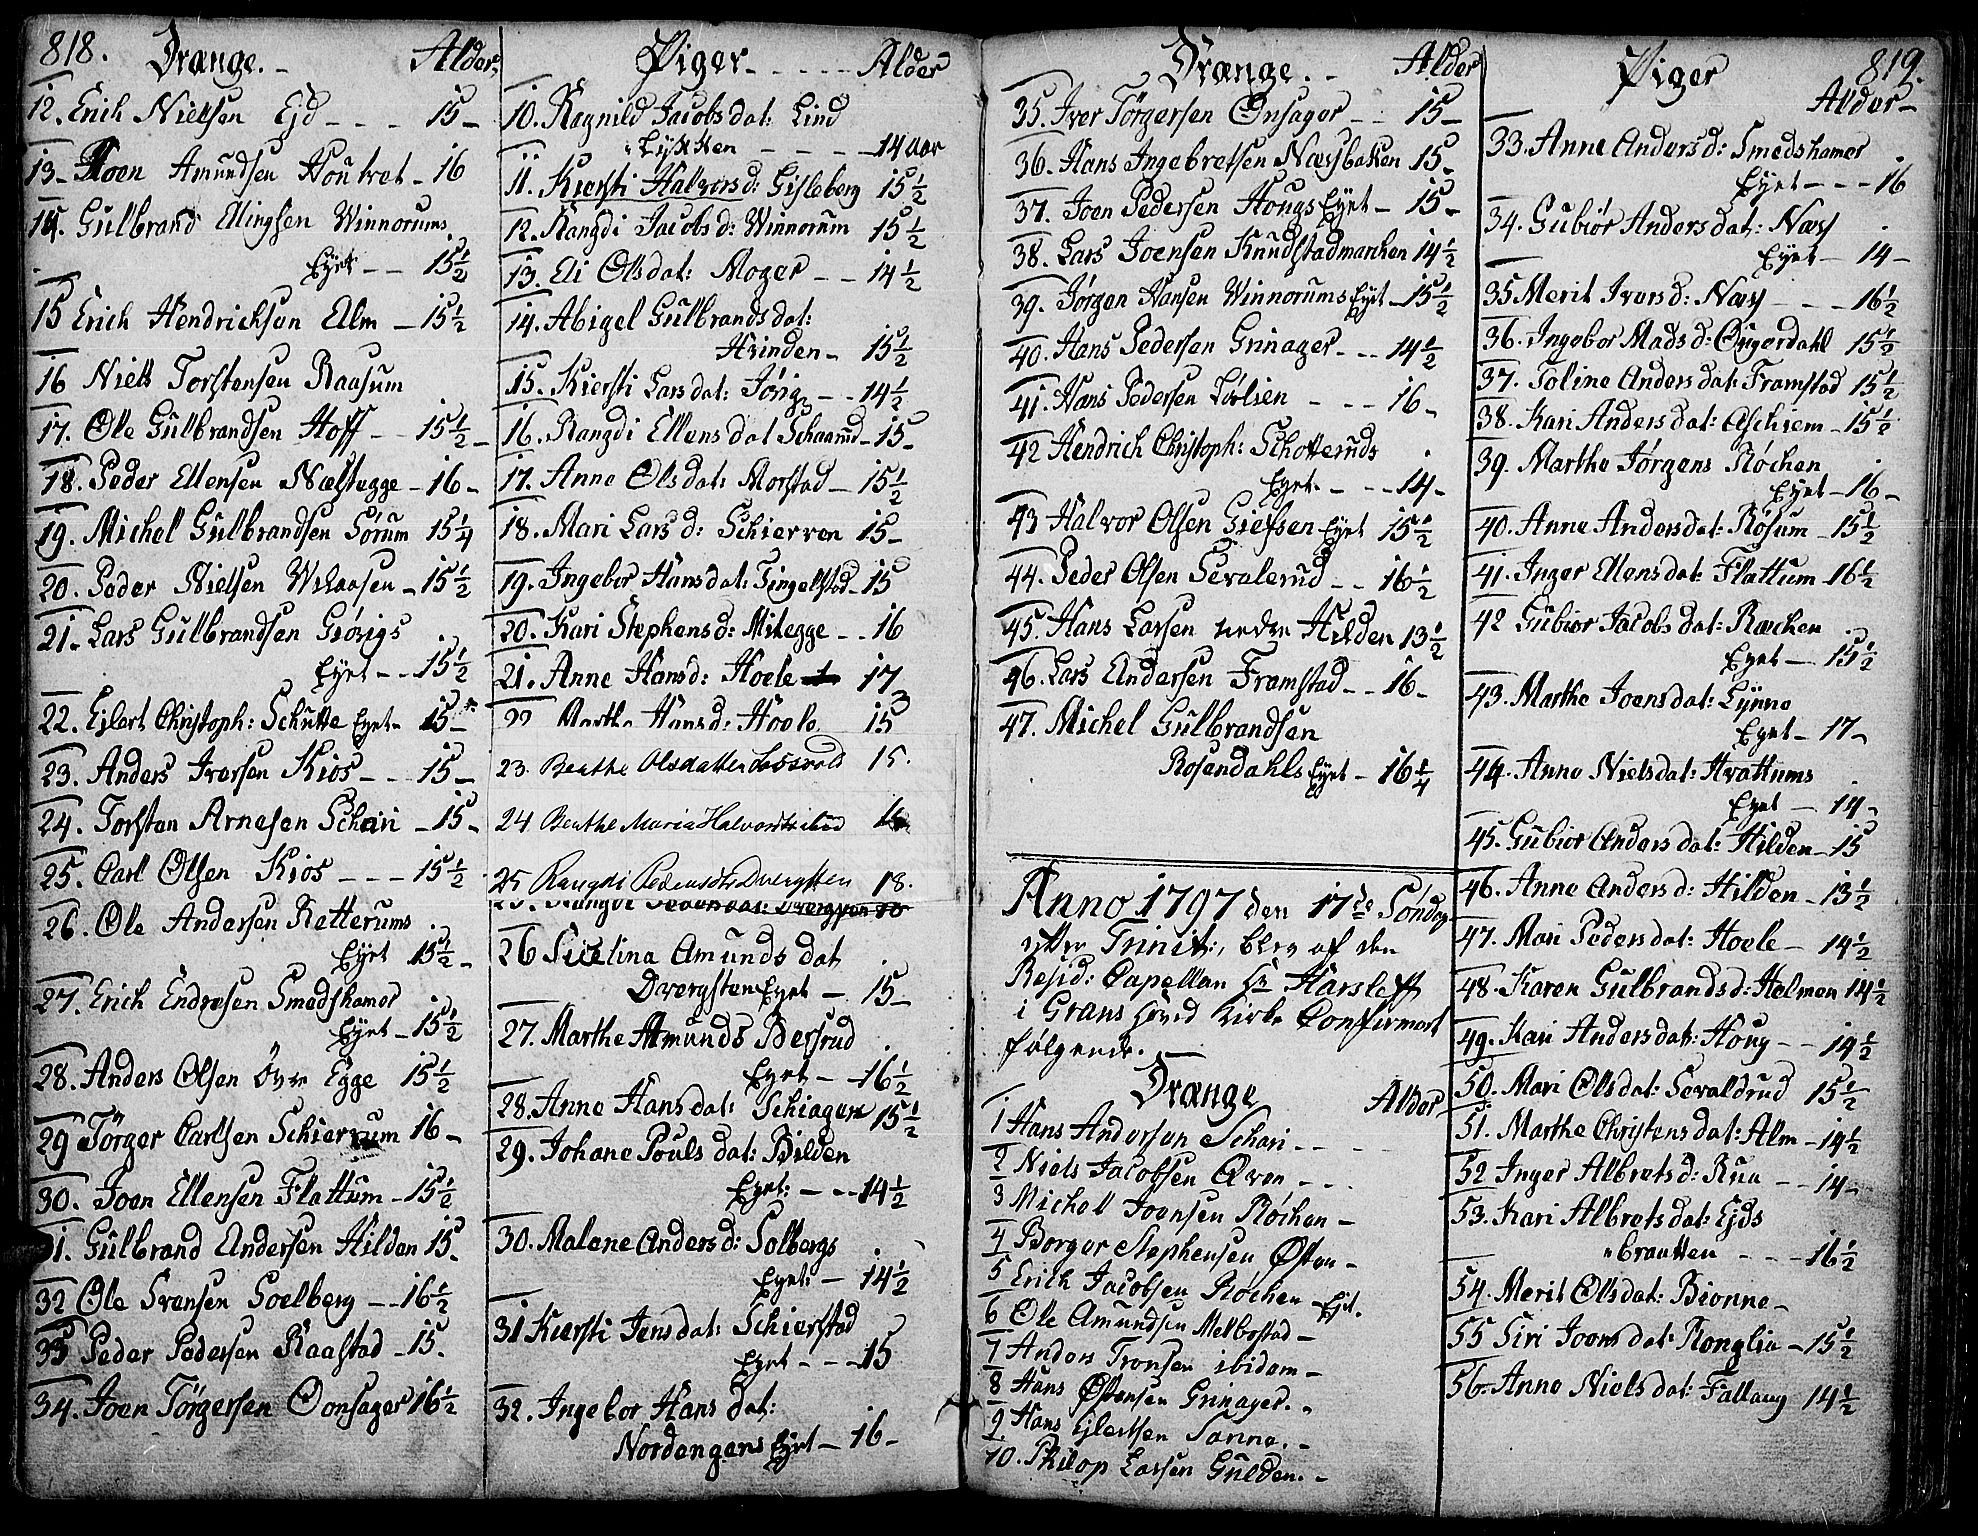 818.
Drænge. - Alder.
12. Erich Nielsen Ejd - - - 15 -
13 - Joen Amundsen Houtvet - 16
14. Gulbrand Ellingsen Winnorums
Eyet - - 15 1/2
15 Erich Hendrichsen Alm - 15 1/2
16 Niels Torstensen Raasum
17. Ole Gulbrandsen Hoff - - 15 1/2 -
18. Peder Ellensen Næstegge - 16 -
19. Michel Gulbrandsen Sørum 15 1/4
20. Peder Nielsen - 15 1/2
21. Lars Gulbrandsen Giörigs
Eyet - - 15 1/2
22. Ejlert Christoph: Schutte Eyet - 15 -
23. Anders Iversen Kios - - - 15 -
24. Torsten Arnesen Schari - 15 -
25. Carl Olsen Kios - - - 15 1/2
26. Ole Andersen Retterums
Eyet 15 1/2 -
27. Erich Endresen Smedshamer
Eyet - 15 1/2
28. Anders Olsen Övre Egge 15 1/2
29 Jörger Carlsen Schierrum 16 -
30. Joen Ellensen Flattum - 15 1/2
31. Gulbrand Andersen Hilden 15 -
32 Ole Svensen Soelberg - - 16 1/2
33 Peder Pedersen Raastad - 15.
34. Joen Jörgersen Oonsager 16 1/2
Piger - - - - - Alder
10. Ragnild Jacobs dat: Lind
"Lykken - - - - - 14 aar
11. Kiersti Halvorsd: Gisleberg 15 1/2
12. Rangdi Jacobs d: Winnorum 15 1/2
13. Eli Olsdat: Moger - - 14 1/2
14. Abigel Gulbrands dat:
Hvinden - 15 1/2
15. Kiersti Lars dat: - - 14 1/2
16. Rangdi Ellens dat Schaarud - 15 -
17. Anne Olsdat: Morstad - 15 1/2
18. Mari Lars d: Schierven 15 -
19. Ingebor Hans dat: Tingelstad - 15
20. Kari Stephens d: Mitegge - - 16
21. Anne Hans d: Hoele 17
22. Marthe Hans d: Hoele 15
23. Benthe Olsdatter 15.
24 Benthe Maria 16
25 Rangdi Pedersdtr Dvergsten 18.
25. Rangdi Dvergsten 18
26 Sicelina Amunds dat
Dvergsten Eyet - 15 -
27. Marthe Amunds Bersrud
Eyet - - 16 1/2
28. Anne Hans dat: Schiagen 15 1/2
29. Johane Pouls dat: Bilden
Eyet: - - - 14 1/2
30. Malene Anders d: Solbergs
Eyet: - 14 1/2
31 Kiersti Jens dat: Schierstad
Eyet - - - 15
32. Ingebor Hans dat:
Nordengens Eyet - 16 -
Drænge. - Alder
35. Iver Törgersen Onsager - - 15 -
36. Hans Ingebretsen Næssbakken 15 -
37. Joen Pedersen Hougs Eyet - 15 -
38. Lars Joensen Knudstadmarken 14 1/2
39. Jörgen Hansen Winnorums Eyet - 15 1/2
40. Hans Pedersen Grinager - - - 14 1/2
41. Hans Pedersen Lörlien - - - 16 -
42 Hendrich Christoph: Schotteruds
Eyet. - - - 14 -
43 Halvor Olsen Giefsen Eyet 15 1/2
44. Peder Olsen Sevalerud - - 16 1/2
45. Hans Larsen nedre Hilden 13 1/2
46. Lars Andersen Framstad - - 16 -
47. Michel Gulbrandsen
Rosendahls Eyet - 16 1/4
Anno 1797 den 17de Söndag
efter Trinit:, blev af den
Resid: Capellan Hr Harsleff
i Grans Hoved Kirke Confirmert
følgende.
Drænge Alder
1 Hans Andersen Schari - - -
2 Niels Jacobsen Æven - - -
3 Michell Joensen Röchen -
4 Borger Stephensen Østen -
5 Erich Jacobsen Röchen Ejet.
6 Ole Amundsen Melbostad -
7 Anders Tronsen ibidem -
8 Hans Østensen Grinager. -
9. Hans Ejlertsen Sanne. -
10. Philop Larsen Gulden. -
819.
Piger
Alder -
33. Anne Anders d: Smedshamer
Eyet - - - 16
34. Gubiör Anders dat: Næss
Eyet - 14 -
35 Merit Ivers d: Næss - - - 16 1/2
36. Ingebor Mads d: Öugerdahl 15 1/2
37. Toline Anders dat: Framstad 15 1/2
38. Kari Anders dat: Aschiem - 15 1/2
39. Marthe Jörgens Röchen
Eyet - 16 -
40. Anne Anders dat: Rösum - 15 1/2
41. Inger Ellens dat: Flattum - 16 1/2
42 Gubiör Jacobs dat: Ræchen
Eyet - 15 1/2
43. Marthe Joens dat: Lynne
Eyet - 17 -
44. Anne Niels dat: Hvattums
Eyet - 14 -
45. Gubiör Anders dat: Hilden - 15
46. Anne Anders d: Hilden - 13 1/2
47. Mari Peders dat: Hoele - 14 1/2
48. Karen Gulbrands d: Holmen 14 1/2
49. Kari Anders dat: Houg - - 14 1/2
50. Mari Olsdat: Sevaldrud 15 1/2
51. Marthe Christens dat: Alm - 14 1/2
52 Inger Albrets d: Rua - - 14 -
53. Kari Albrets dat: Ejds
"braatten - - - - 16 1/2
54. Merit Olsdat: Bionne -
55 Siri Joens dat: Ronglia - 15 1/2
56. Anne Niels dat: Fallang 14 1/2